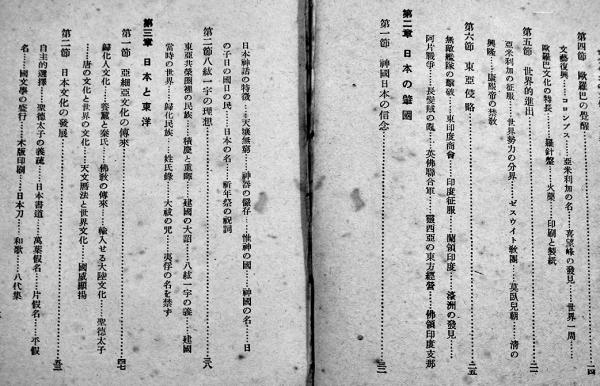 第四節 歐羅巴の覺醒……一四
文藝復興……コロンブス……亞米利加の名……喜望峰の發見……世界一周……
歐羅巴文化の特長……羅針盤……火藥……印刷と製紙
第五節 世界的進出……二一
亞米利加の征服……世界勢力の分界……ゼスウイト敎團……莫臥兒朝……淸の
興隆……康熙帝の禁敎
第六節 東亞侵略……二五
無敵艦隊の擊破……東印度商會……印度征服……蘭領印度……濠洲の發見……
阿片戰爭……長髮賊の亂……英佛聯合軍……露西亞の東方經營……佛領印度支那
第二章 日本の肇國
第一節 神國日本の信念……三二
日本神話の特徵……天壤無窮……神器の儼存……惟神の國……神國の名……日
の子日の國日の民……日本の名……祈年祭の祝詞
第二節 八紘一宇の理想……三八
東亞共榮圈裡の民族……積慶と重暉……建國の大詔……八紘一宇の義……建國
當時の世界……歸化民族……姓氏錄……大祓の咒……夷俘の名を禁ず
第三章 日本と東洋
第一節 亞細亞文化の傳來……四七
歸化人文化……養蠶と秦氏……佛敎の傳來……輸入せる大陸文化……聖德太子
……唐の文化と世界の文化……天文曆法と世界文化……國威顯揚
第二節 日本文化の發展……五三
自主的選擇……聖德太子の義疏……日本書道……萬葉假名……片假名……平假
名……國文學の盛行……木版印刷……日本刀……和歌……八代集